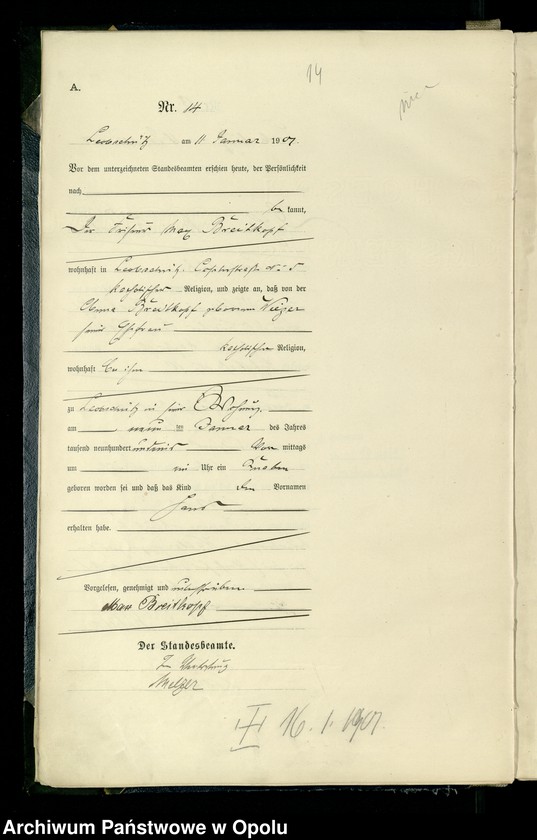 14
A.
Nr. 14
Leobschütz am 11 Januar 1907
Vor dem unterzeichneten Standesbeamten erschien heute, der Persönlichkeit
nach
be kannt,
Der Friseur Max Breitkopf
wohnhaft in Leobschütz
katholischer Religion, und zeigte an, daß von der
Breitkopf geborenen
seiner Ehefrau
katholischer Religion,
wohnhaft bei ihm
zu Leobschütz in seiner Wohnung
am neun ten Januar des Jahres
tausend neunhundert und sieben Vor mittags
um Uhr ein Knabe
geboren worden sei und daß das Kind den Vornamen
Hans
erhalten habe.
Vorgelesen, genehmigt und unterschrieben
Max Breitkopf
Der Standesbeamte.
In Vertretung
Melzer
16. 1. 1907.
Archiwum Państwowe w Opolu